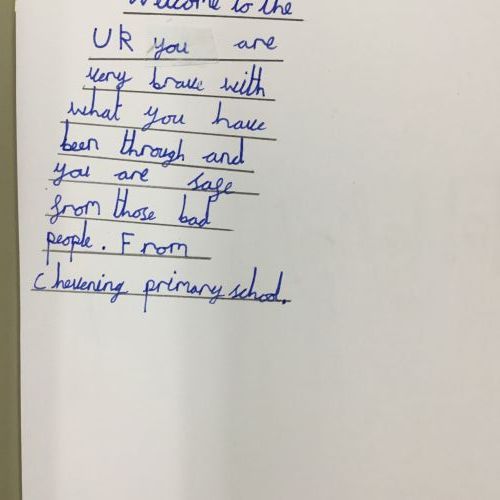 Welcome to the
UK you are
very brave with
what you have
been through and
you are safe
from those bad
people. From
Chevening primary school.